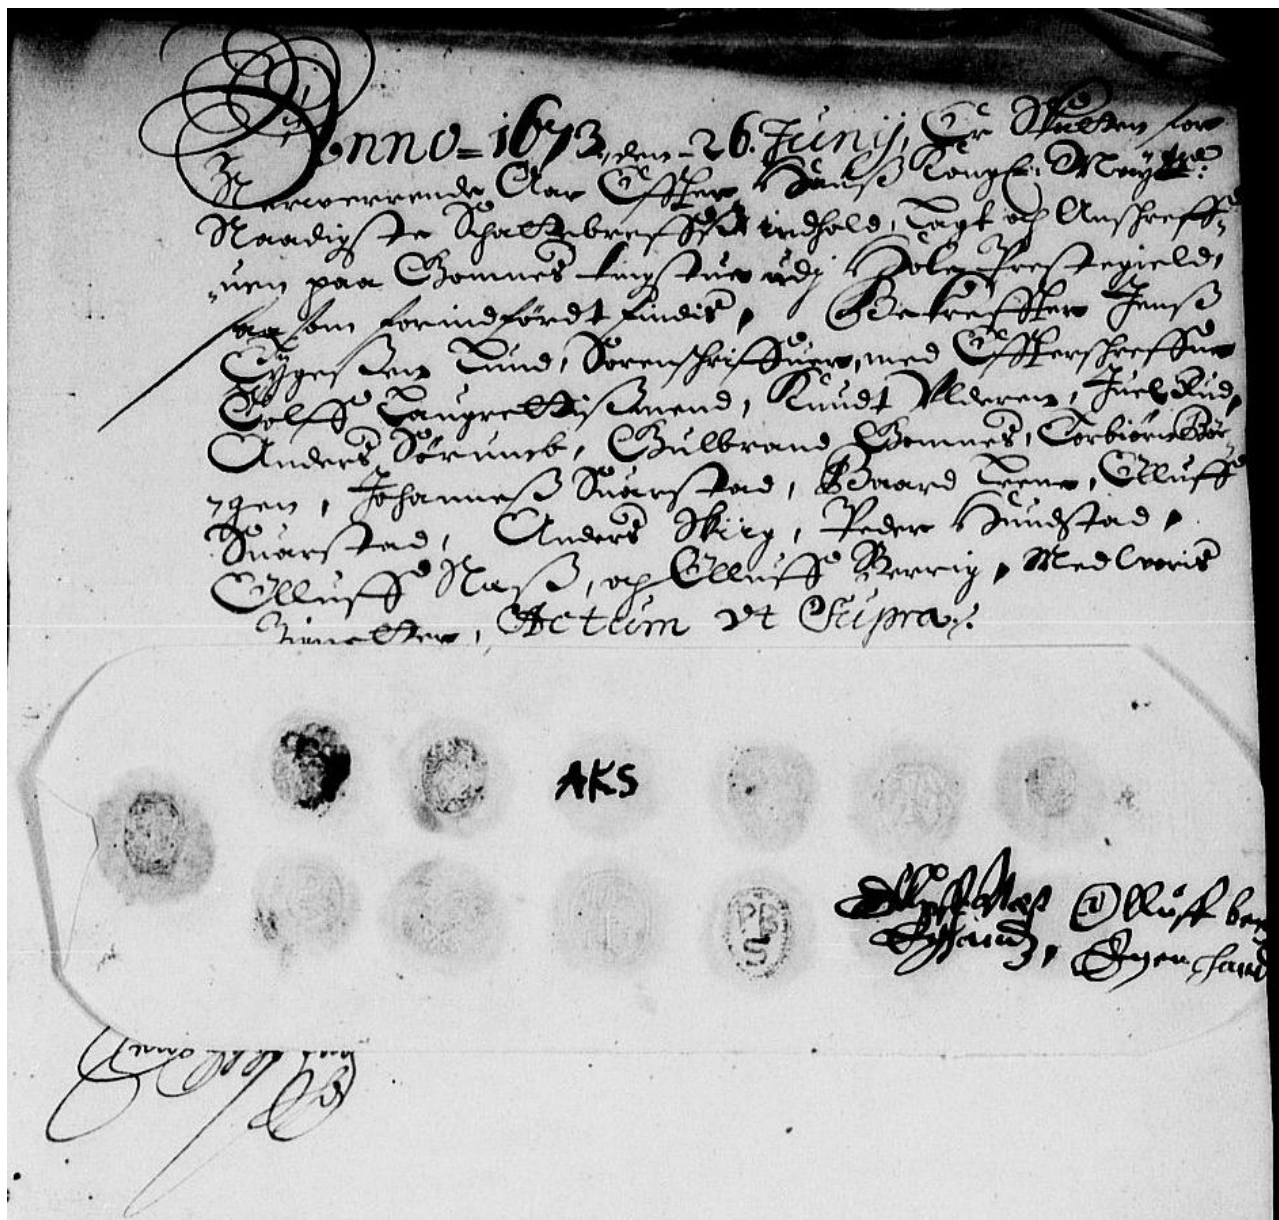 Anno = 1673, den - 26. Junij, Er Skatten for
Nerverrende Aar Effter Hanß Kongl: Mayttz:
Naadigste Schattebreffs indhold, Tagt och Anschreff-
-uen paa Bomnes tingstue udj Hole Prestegield,
som forindfördt findis, Bekreffter Jenß
Tygeßen Lund, Sorenschriffuer, med Effterschreffne
Tolff Laugrettißmend, Knudt Ulderen, Juel Rud,
Anders Sørumb, Gulbrand Bomnes, Torbiørn Bør-
-gen, Johanneß Suarstad, Baard Leene, Olluff
Suarstad, Anders Skirg, Peder Hundstad,
Olluff Naß, och Olluff Berrig, Med Voris
Zignetter, Actum Ut Supra.
AKS
PBS
Olluff Neß Olluff ber
Egen hand